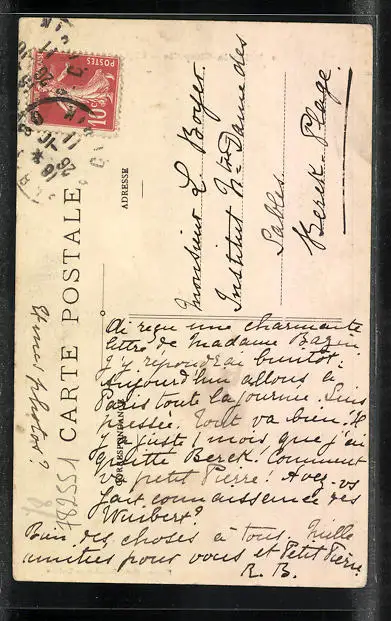 CARTE POSTALE
ADRESSE
CORRESPONDANCE
POSTES
10c
Monsieur L. Boyer.
Institut N-tre Dame des
Sables.
Berck-Plage.
Ai reçu une charmante
lettre de Madame Bazin
j'y répondrai bientôt.
Aujourd'hui allons à
Paris toute la journée. Suis
pressée. Tout va bien. Il
y a juste 1 mois que j'ai
quitté Berck. Comment
va petit Pierre? Avez-vs
fait connaissance des
Wuibert?
Bien des choses à tous. Mille
amitiés pour vous et Petit Pierre
R. B.
et mes photos?